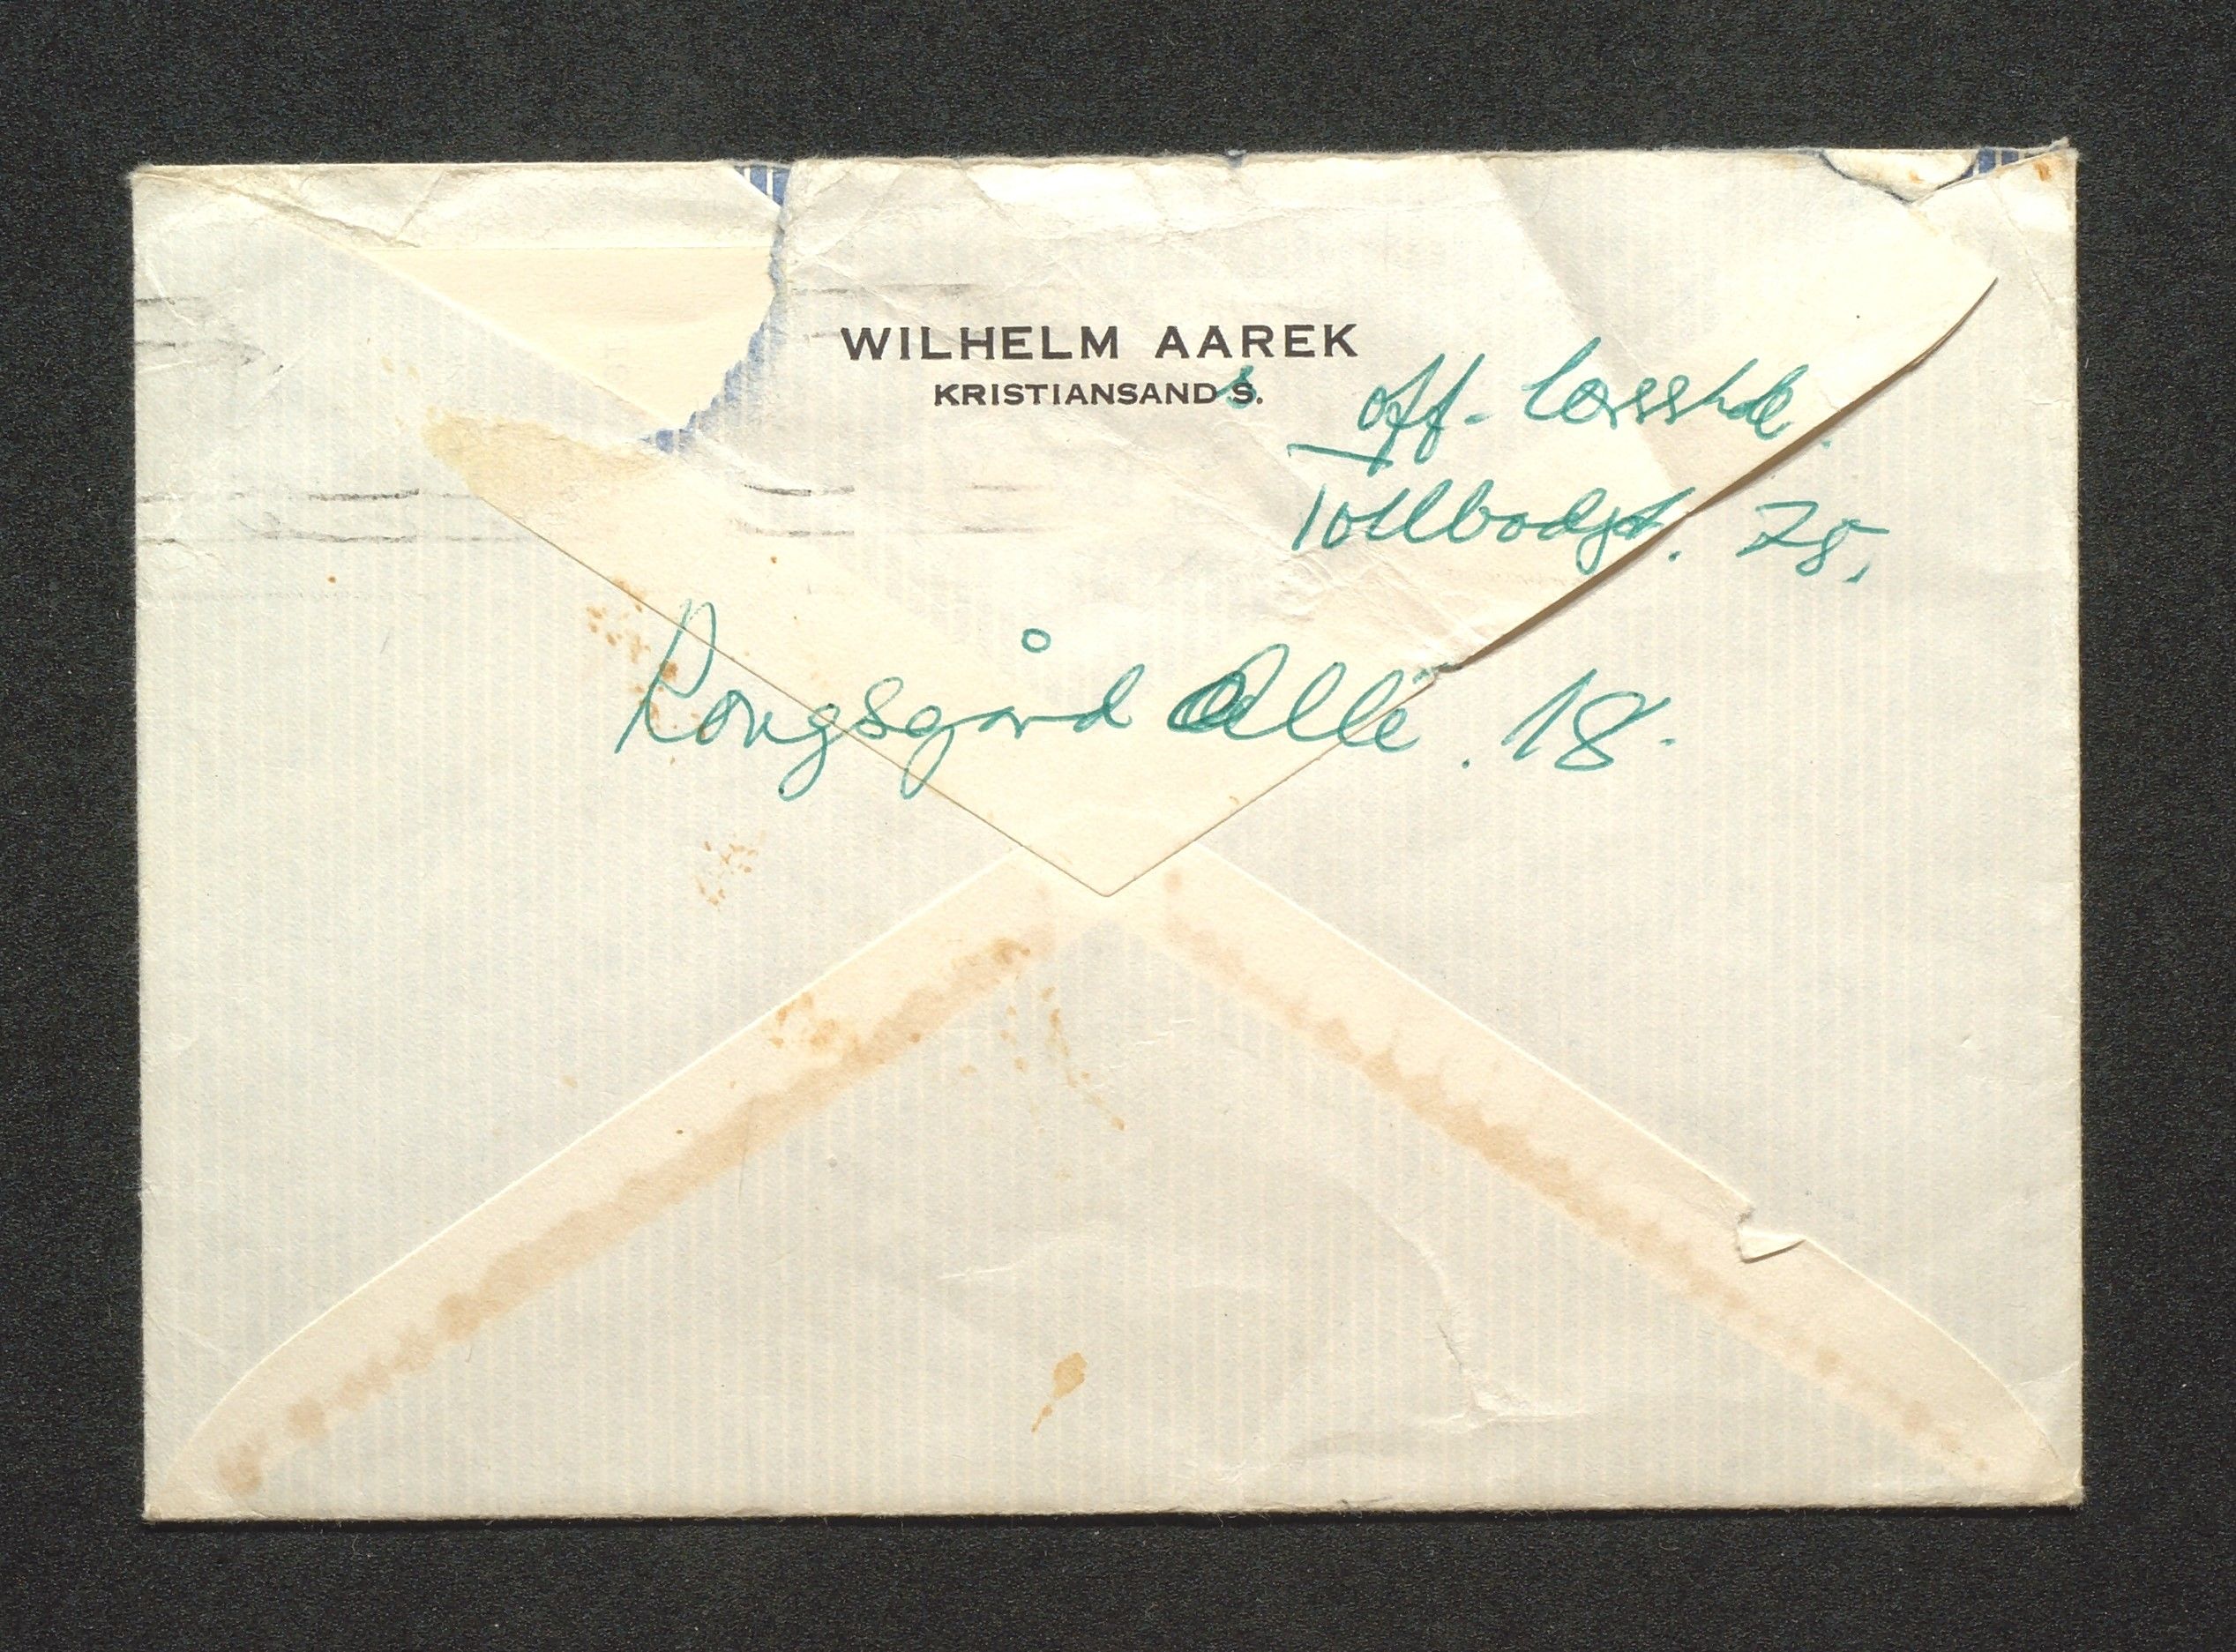 WILHELM AAREK
KRISTIANSAND S.
off.
Tollbodgt. 75.
Kongsgård Allé. 18.